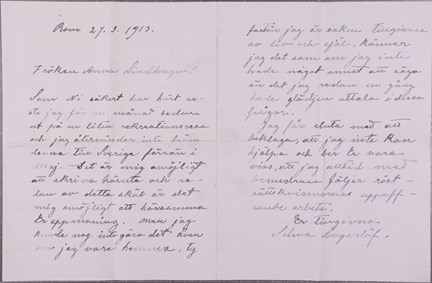 Rom 27. 3. 1913.
Fröken Anna Lindhagen!
Som Ni säkert har hört res-
te jag för en månad sedan
ut på en liten rekreationsresa
och jag återvänder inte från
denna till Sverige förrän i
maj. Det är mig omöjligt
att skriva härute och re-
dan av detta skäl är det
mig omöjligt att hörsamma
Er uppmaning. Men jag
kunde nog inte göra det även
om jag vore hemma, ty
fastän jag är saken tillgiven
av liv och själ, känner
jag det som om jag inte
hade något annat att säga
än det jag redan en gång
hade glädjen uttala i dessa
frågor.
Jag får sluta med att
beklaga, att jag inte kan
hjälpa och ber Er vara
viss, att jag alltid med
beundran följer röst-
rättskvinnornas uppoff-
rande arbete.
Er tillgivna
Selma Lagerlöf.